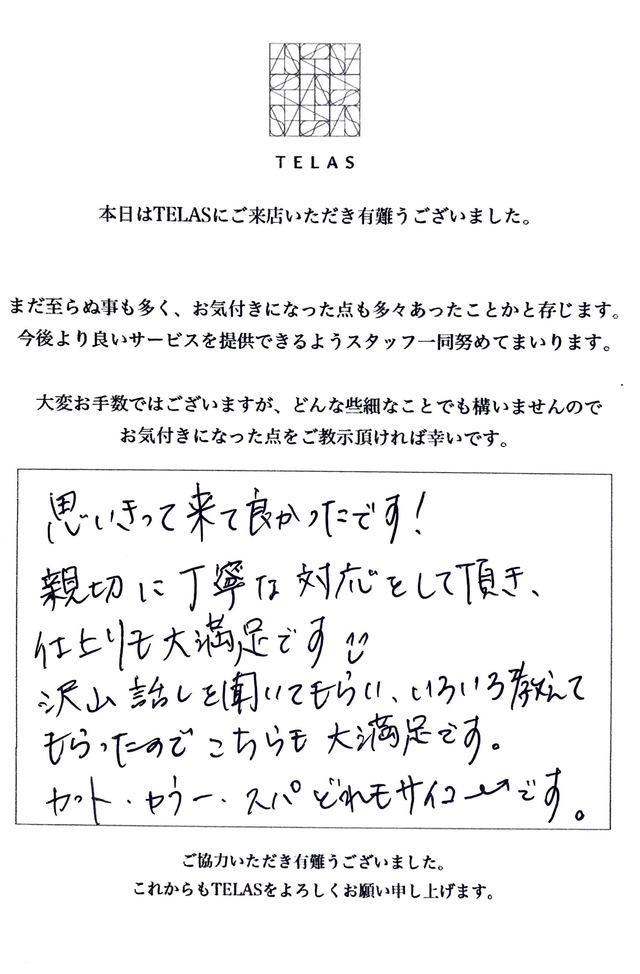 TELAS
本日はTELASにご来店いただき有難うございました。
まだ至らぬ事も多く、お気付きになった点も多々あったことかと存じます。
今後より良いサービスを提供できるようスタッフ一同努めてまいります。
大変お手数ではございますが、どんな些細なことでも構いませんので
お気付きになった点をご教示頂ければ幸いです。
思いきって来て良かったです!
親切に丁寧な対応をして頂き、
仕上りも大満足です
沢山話しを聞いてもらい、いろいろ教えて
もらったのでこちらも大満足です。
カット・カラー・スパどれもサイコーです。
ご協力いただき有難うございました。
これからもTELASをよろしくお願い申し上げます。